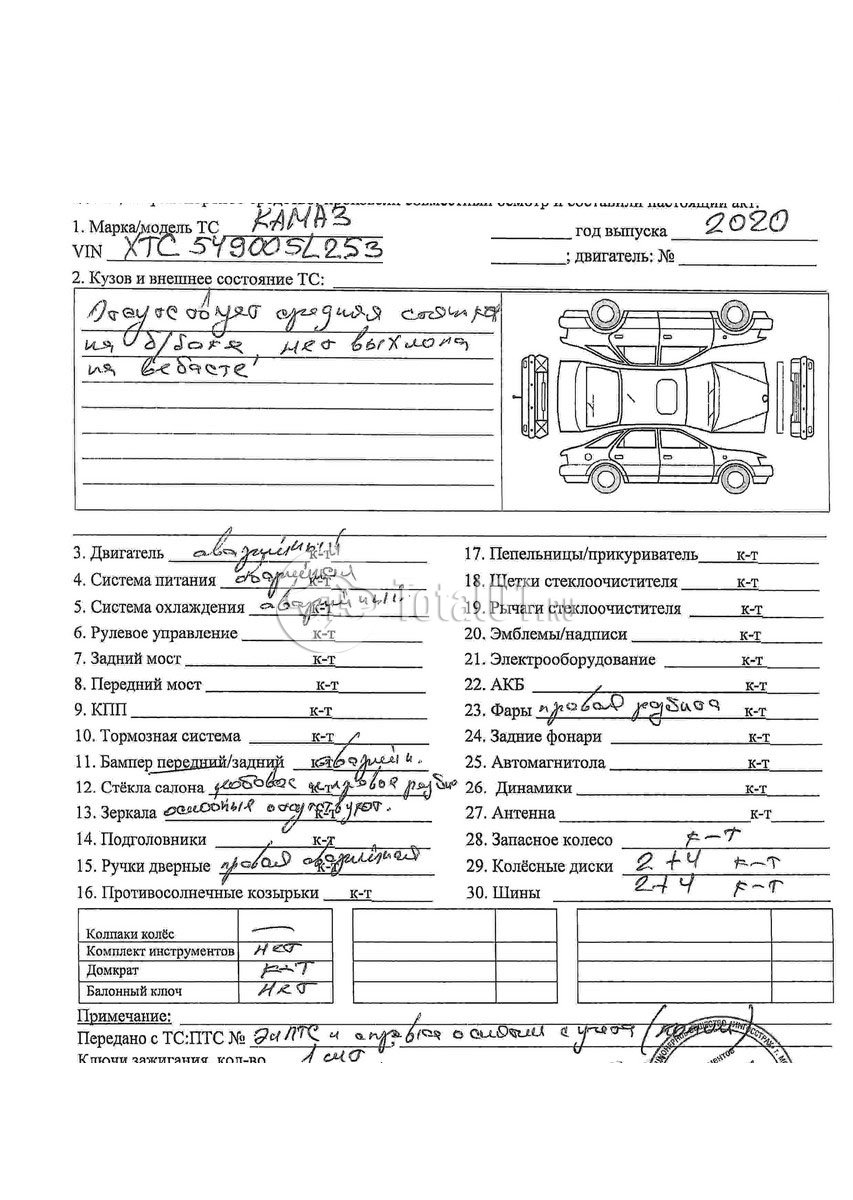 осмотр и составили настоящий акт.
1. Марка/модель ТС КАМАЗ год выпуска 2020
VIN XTC549005L253 ; двигатель: №
2. Кузов и внешнее состояние ТС:
Отсутствует средняя стяжка
на б/баке, нет выхлопа
на вебасте
3. Двигатель аварийный к-т 17. Пепельницы/прикуриватель к-т
4. Система питания аварийная к-т 18. Щетки стеклоочистителя к-т
5. Система охлаждения аварийный к-т 19. Рычаги стеклоочистителя к-т
Total01.RU
6. Рулевое управление к-т 20. Эмблемы/надписи к-т
7. Задний мост к-т 21. Электрооборудование к-т
8. Передний мост к-т 22. АКБ к-т
9. КПП к-т 23. Фары правая разбита к-т
10. Тормозная система к-т 24. Задние фонари к-т
11. Бампер передний/задний к-т аварийн. 25. Автомагнитола к-т
12. Стёкла салона лобовое к-т правая разбит 26. Динамики к-т
13. Зеркала основные отсутствуют. к-т 27. Антенна к-т
14. Подголовники к-т 28. Запасное колесо к-т
15. Ручки дверные правая аварийная к-т 29. Колёсные диски 2+4 к-т
16. Противосолнечные козырьки к-т 30. Шины 2+4 к-т
Колпаки колёс —
Комплект инструментов нет
Домкрат к-т
Балонный ключ нет
Примечание:
Передано с ТС:ПТС № ЭлПТС и справка о снятии с учета (копии)
Ключи зажигания, кол-во 1 шт